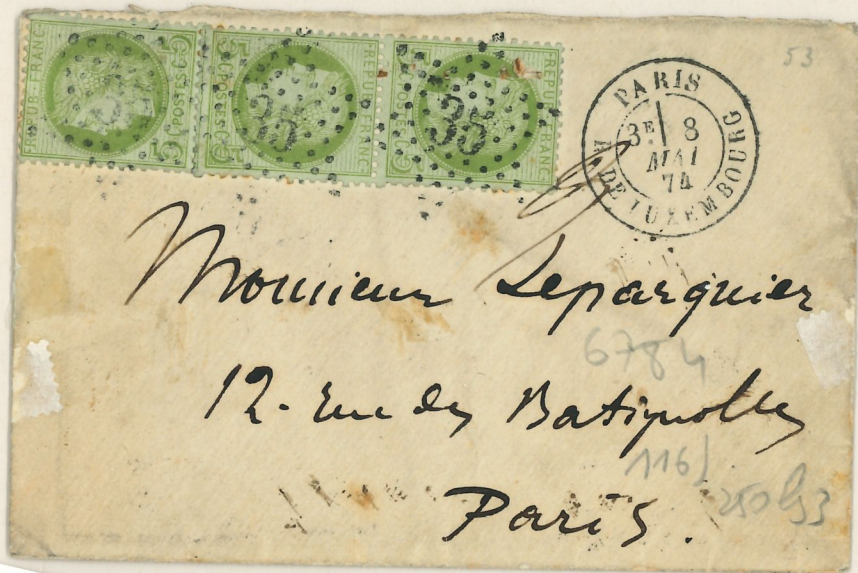 REPUB·FRANC·
5 C POSTES 5 C
35
REPUB·FRANC·
5 C POSTES 5 C
35
REPUB·FRANC·
5 C POSTES 5 C
35
PARIS
3E 8
MAI
74
R. DE LUXEMBOURG
53
Monsieur Leparquier
6784
12 - rue des Batignolles
116)
Paris.